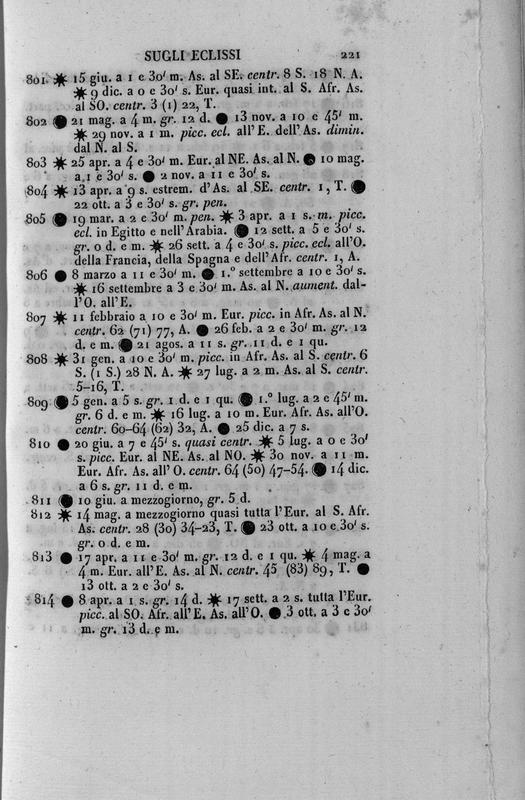 SUGLI ECLISSI 221
801 ✷ 15 giu. a 1 e 30' m. As. al SE. centr. 8 S. 18 N. A.
✷ 9 dic. a 0 e 30' s. Eur. quasi int. al S. Afr. As.
al SO. centr. 3 (1) 22, T.
802 ● 21 mag. a 4 m. gr. 12 d. ● 13 nov. a 10 e 45' m.
✷ 29 nov. a 1 m. picc. ecl. all'E. dell'As. dimin.
dal N. al S.
803 ✷ 25 apr. a 4 e 30' m. Eur. al NE. As. al N. ● 10 mag.
a 1 e 30' s. ● 2 nov. a 11 e 30' s.
804 ✷ 13 apr. a 9 s. estrem. d'As. al SE. centr. 1, T. ●
22 ott. a 3 e 30' s. gr. pen.
805 ● 19 mar. a 2 e 30' m. pen. ✷ 3 apr. a 1 s. m. picc.
ecl. in Egitto e nell'Arabia. ● 12 sett. a 5 e 30' s.
gr. 0 d. e m. ✷ 26 sett. a 4 e 30' s. picc. ecl. all'O.
della Francia, della Spagna e dell'Afr. centr. 1, A.
806 ● 8 marzo a 11 e 30' m. ● 1.° settembre a 10 e 30' s.
✷ 16 settembre a 3 e 30' m. As. al N. aument. dal-
l'O. all'E.
807 ✷ 11 febbraio a 10 e 30' m. Eur. picc. in Afr. As. al N.
centr. 62 (71) 77, A. ● 26 feb. a 2 e 30' m. gr. 12
d. e m. ● 21 agos. a 11 s. gr. 11 d. e 1 qu.
808 ✷ 31 gen. a 10 e 30' m. picc. in Afr. As. al S. centr. 6
S. (1 S.) 28 N. A. ✷ 27 lug. a 2 m. As. al S. centr.
5-16, T.
809 ● 5 gen. a 5 s. gr. 1 d. e 1 qu. ● 1.° lug. a 2 e 45' m.
gr. 6 d. e m. ✷ 16 lug. a 10 m. Eur. Afr. As. all'O.
centr. 60-64 (62) 32, A. ● 25 dic. a 7 s.
810 ● 20 giu. a 7 e 45' s. quasi centr. ✷ 5 lug. a 0 e 30'
s. picc. Eur. al NE. As. al NO. ✷ 30 nov. a 11 m.
Eur. Afr. As. all' O. centr. 64 (50) 47-54. ● 14 dic.
a 6 s. gr. 11 d. e m.
811 ● 10 giu. a mezzogiorno, gr. 5 d.
812 ✷ 14 mag. a mezzogiorno quasi tutta l'Eur. al S. Afr.
As. centr. 28 (30) 34-23, T. ● 23 ott. a 10 e 30' s.
gr. 0 d. e m.
813 ● 17 apr. a 11 e 30' m. gr. 12 d. e 1 qu. ✷ 4 mag. a
4 m. Eur. all'E. As. al N. centr. 45 (83) 89, T. ●
13 ott. a 2 e 30' s.
814 ● 8 apr. a 1 s. gr. 14 d. ✷ 17 sett. a 2 s. tutta l'Eur.
picc. al SO. Afr. all'E. As. all'O. ● 3 ott. a 3 e 30'
m. gr. 13 d. e m.